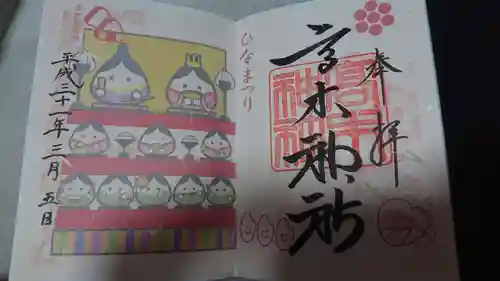 奉拝
高木神社
高木神社
ひなまつり
平成三十一年三月五日